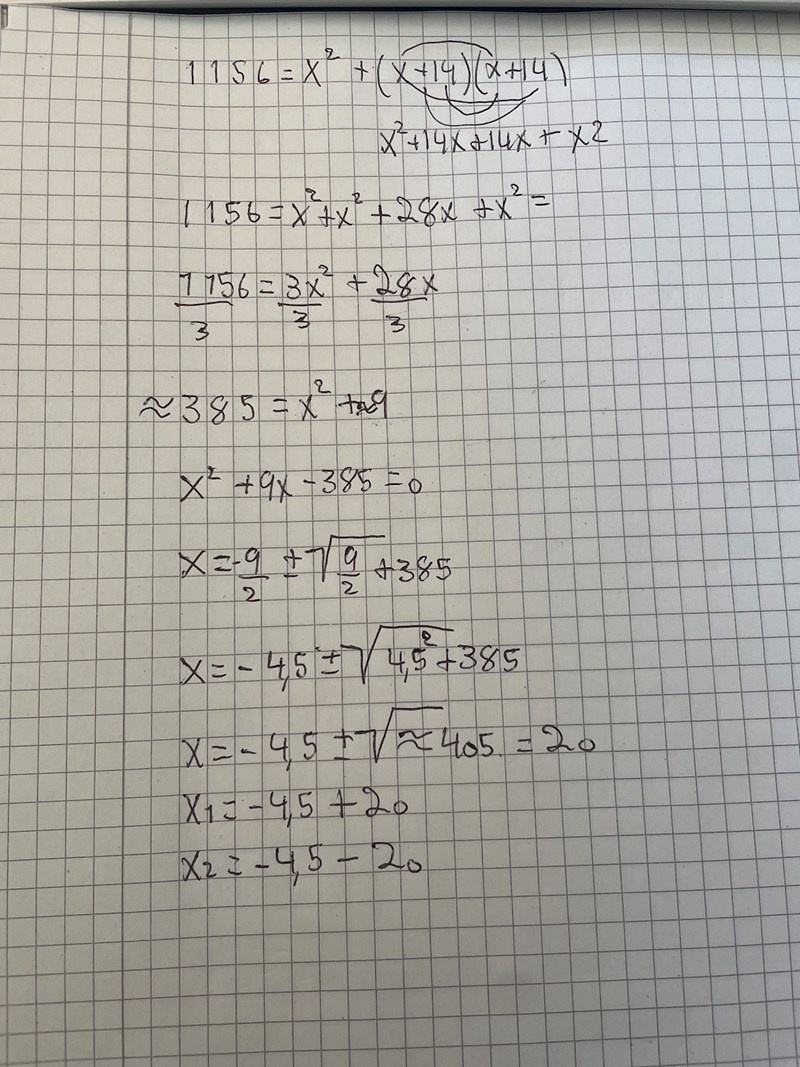 1156 = x² + (x+14)(x+14)
x²+14x+14x + x2
1156 = x²+x² + 28x + x² =
1156/3 = 3x²/3 + 28x/3
≈385 = x² +
x² + 9x - 385 = 0
x = -9/2 ± √9/2 + 385
x = - 4,5 ± √4,5² + 385
x = - 4,5 ± √≈405 = 20
x1 = -4,5 + 20
x2 = -4,5 - 20